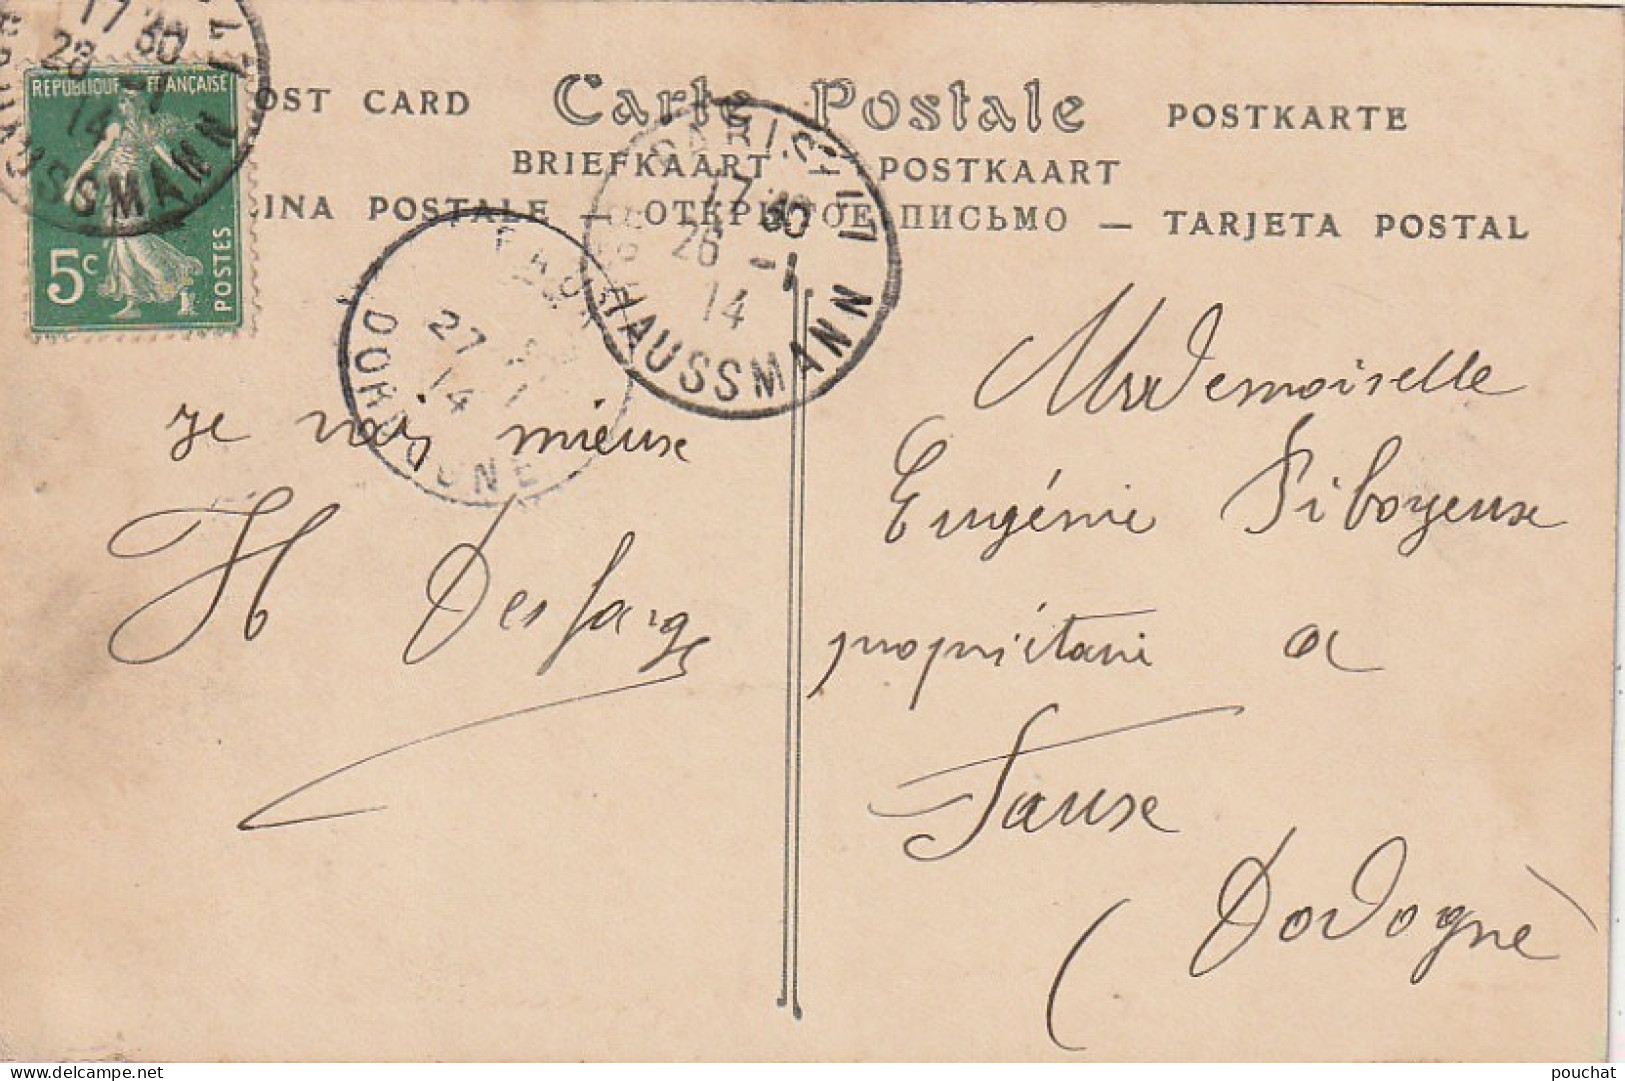 17 30
28
14
HAUSSMANN
REPUBLIQUE FRANÇAISE
5c
POSTES
OST CARD Carte Postale POSTKARTE
BRIEFKAART — POSTKAART
INA POSTALE — ОТКРЫТОЕ ПИСЬМО — TARJETA POSTAL
PARIS
17 30
26 -1
14
HAUSSMANN
27
14
DORDOGNE
je vais mieux
H Desfarges
Mademoiselle
Eugénie Piboyeux
propriétaire a
Faux
(Dordogne
delcampe.net
pouchat